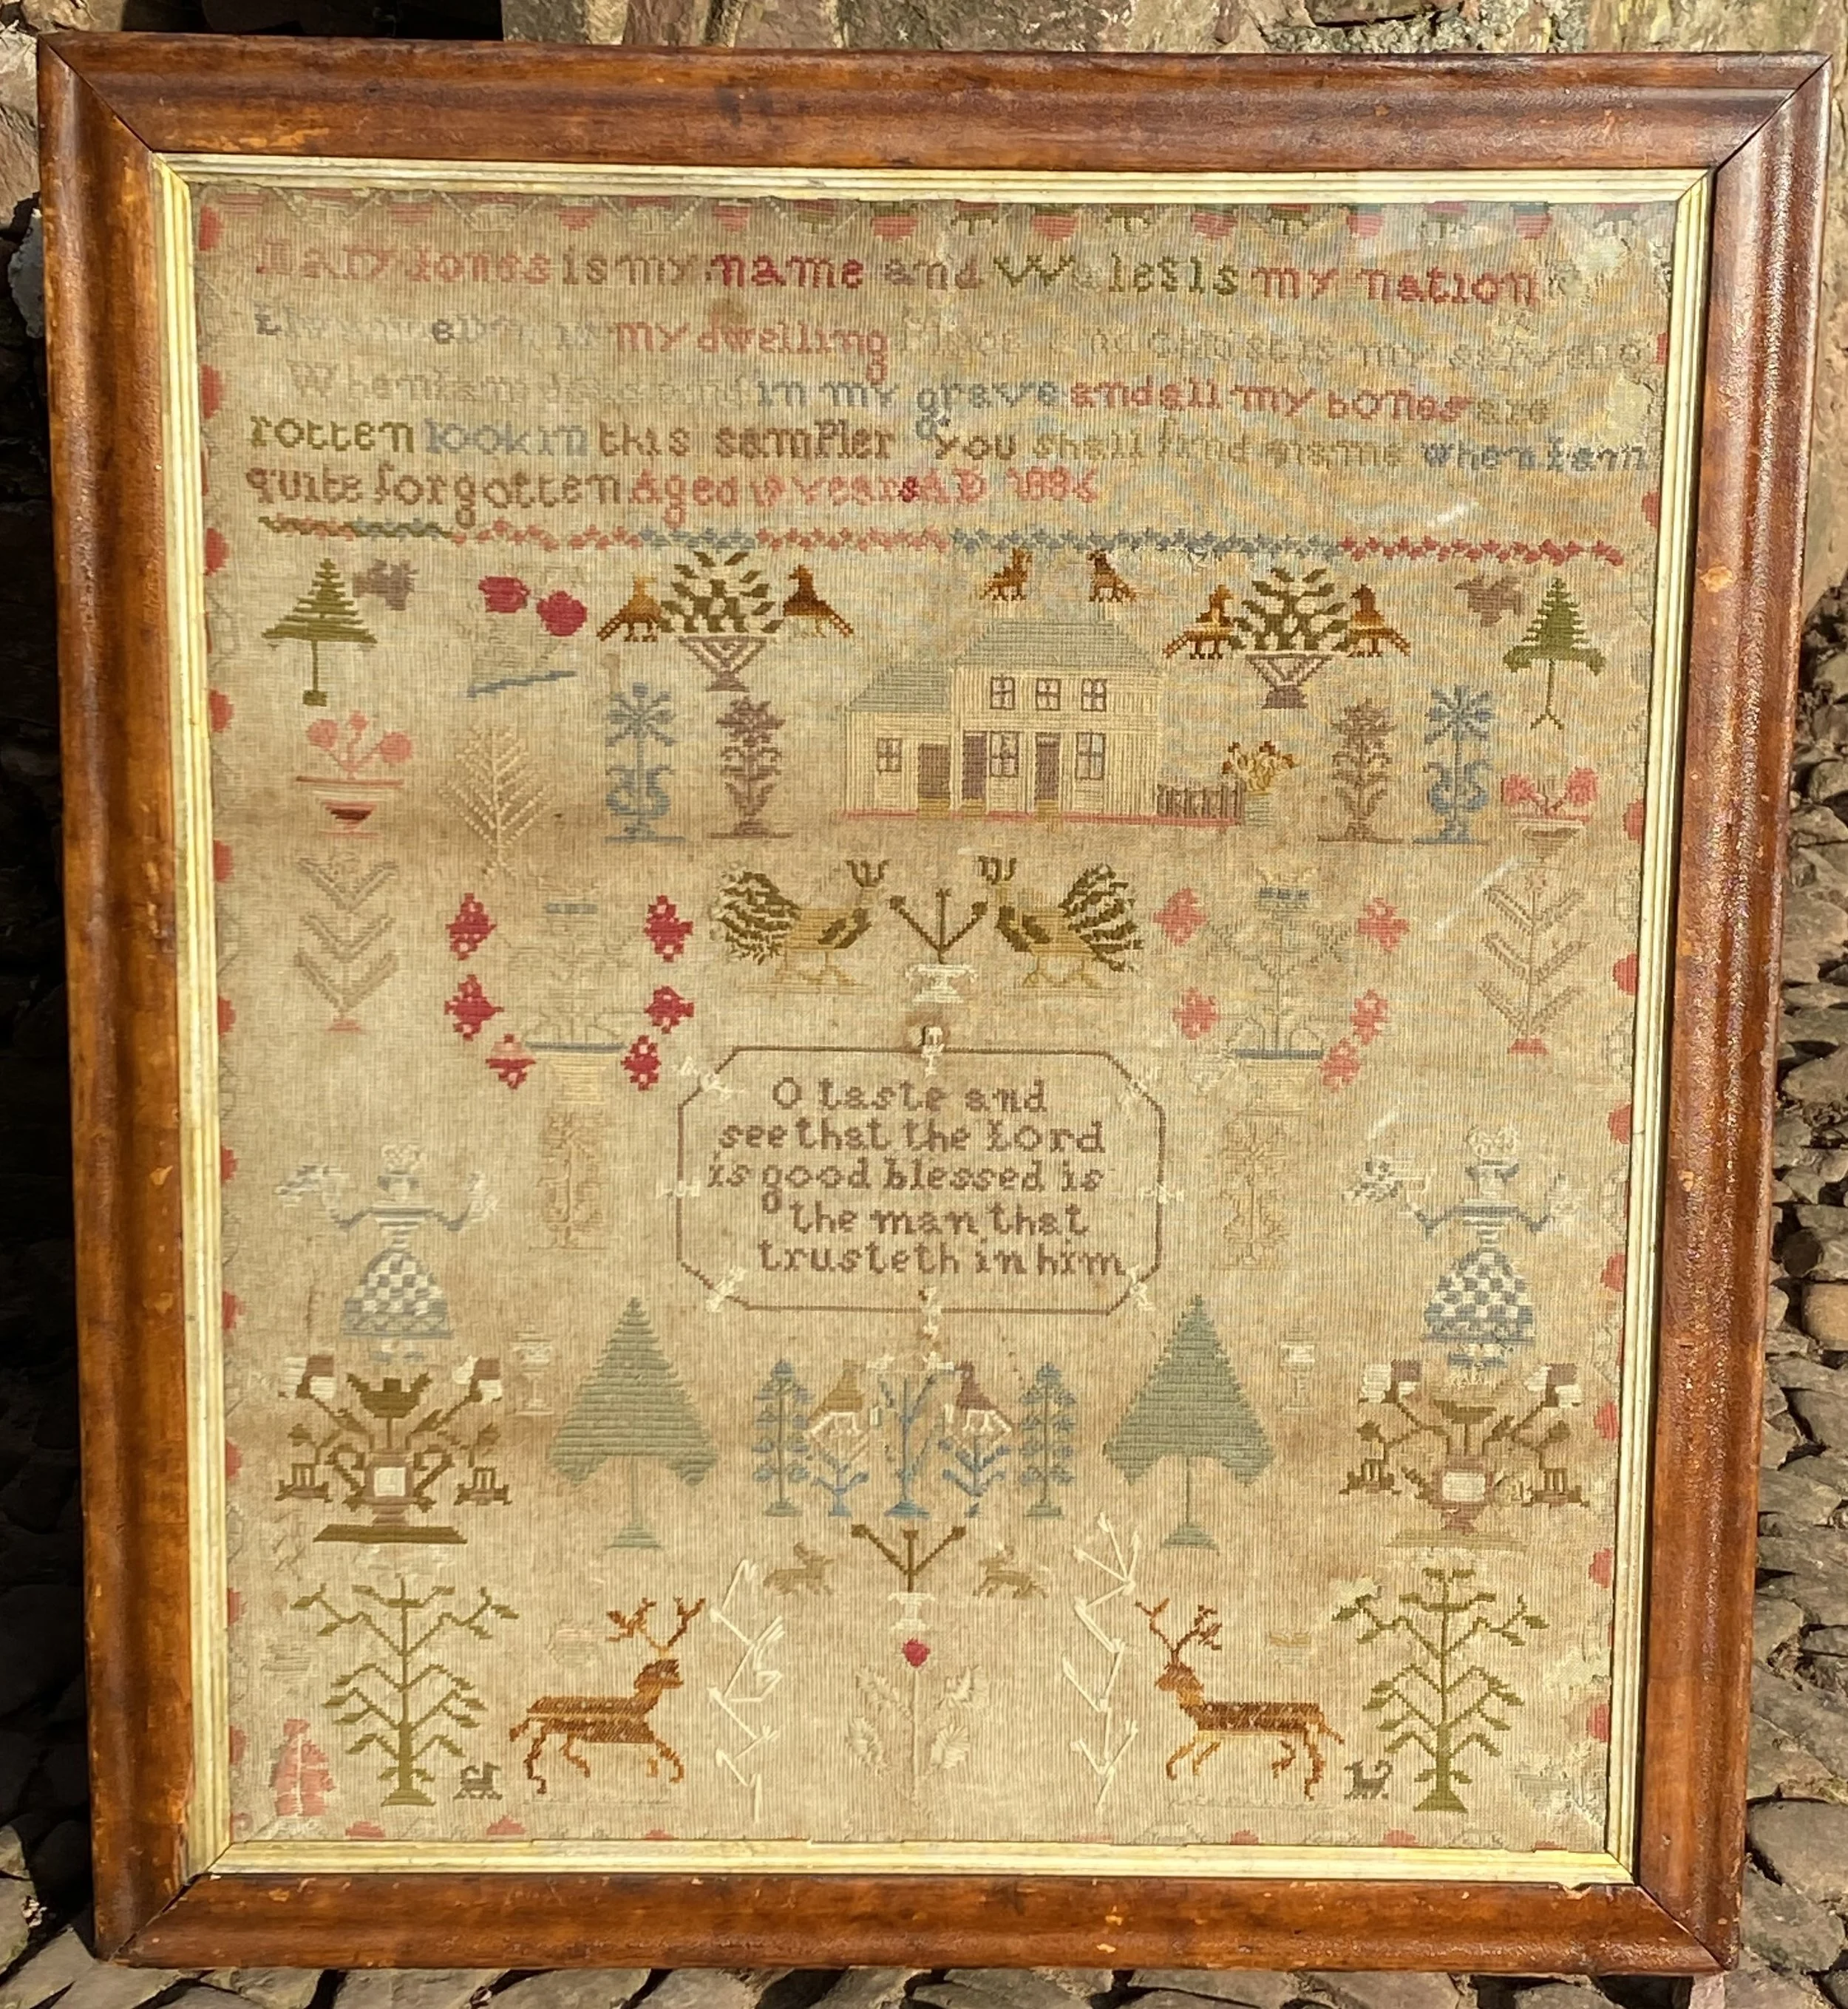 Mary Jones is my name and Wales is my nation
my dwelling place and Christ is my
When I am dead and in my grave and all my bones are
rotten look in this sampler you shall find my name when I am
quite forgotten Aged years AD
O taste and
see that the Lord
is good blessed is
the man that
trusteth in him